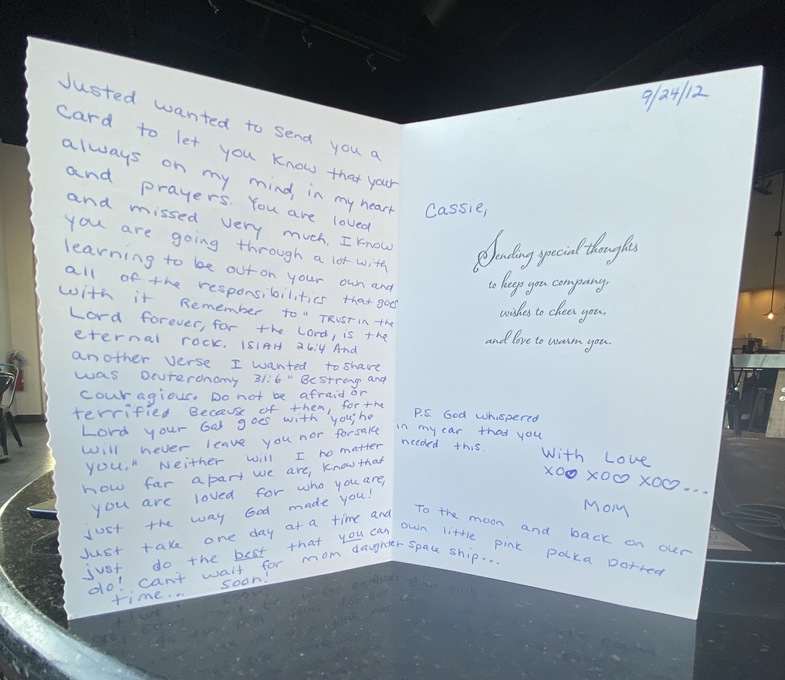 Justed wanted to send you a
card to let you know that your
always on my mind, in my heart
and prayers. You are loved
and missed very much. I know
you are going through a lot with
learning to be out on your own and
all of the responsibilities that goes
with it Remember to "Trust in the
Lord forever, for the Lord, is the
eternal rock. ISIAH 26:4 And
another verse I wanted to share
was Deuteronomy 31:6 "Be strong and
couragious. Do not be afraid or
terrified Because of them, for the
Lord your God goes with you; he
will never leave you nor forsake
you." Neither will I no matter
how far apart we are, know that
you are loved for who you are,
just the way God made you!
Just take one day at a time and
just do the best that you can
do! Can't wait for mom daughter
time... soon!
9/24/12
Cassie,
Sending special thoughts
to keep you company,
wishes to cheer you,
and love to warm you.
P.S. God whispered
in my ear that you
needed this.
With Love
XO♥ XO♡ XO♡...
Mom
To the moon and back on our
own little pink polka dotted
space ship...